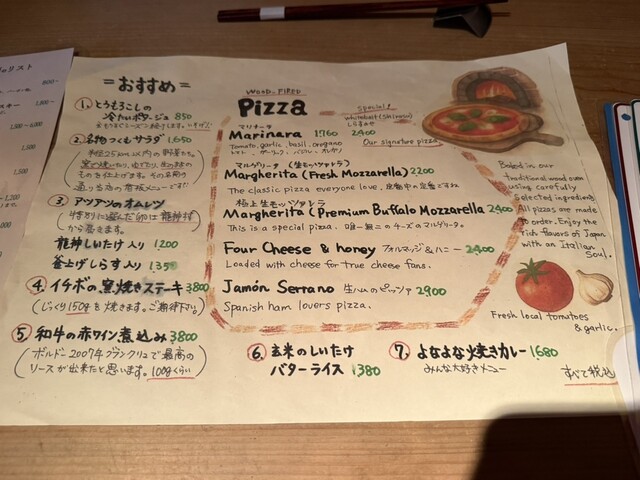 =おすすめ=
1. とうもろこしの
冷たいポタージュ 850
2. 名物つくもサラダ 1,650
3. アツアツのオムレツ
特別に選んだ卵は龍神村
から届きます。
龍神しいたけ入り 1200
釜上げしらす入り 1350
4 イチボの窯焼きステーキ 3800
(じっくり150gを焼きます。ご期待下さい)
5 和牛の赤ワイン煮込み 3800
ボルドー2007年グランクリュで最高の
ソースが出来たと思います。100gくらい
WOOD-FIRED
Pizza
マリナーラ
Marinara 1760
Tomato, garlic, basil, oregano
トマト、ガーリック、バジル、オレガノ
special!
whitebait (Shirasu)
しらすのせ
2400
Our signature pizza
マルゲリータ (生モッツァレラ)
Margherita (Fresh Mozzarella) 2200
The classic pizza everyone love. 定番中の定番ですね
極上生モッツァレラ
Margherita (Premium Buffalo Mozzarella 2400
This is a special pizza. 唯一無二のチーズのマルゲリータ。
Four Cheese & honey フォルマッジ&ハニー 2400
Loaded with cheese for true cheese fans.
Jamón Serrano 生ハムのピッツァ 2900
Spanish ham lovers pizza.
Baked in our
traditional wood oven
using carefully
selected ingredients
All pizzas are made
to order. Enjoy the
rich flavors of Japan
with an Italian
Soul.
Fresh local tomatoes
& garlic.
6. 玄米のしいたけ
バターライス 1380
7. よなよな焼きカレー 1,680
みんな大好きメニュー
すべて税込